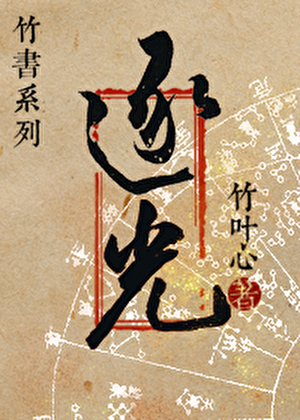 竹書系列
逐光
竹叶心
著